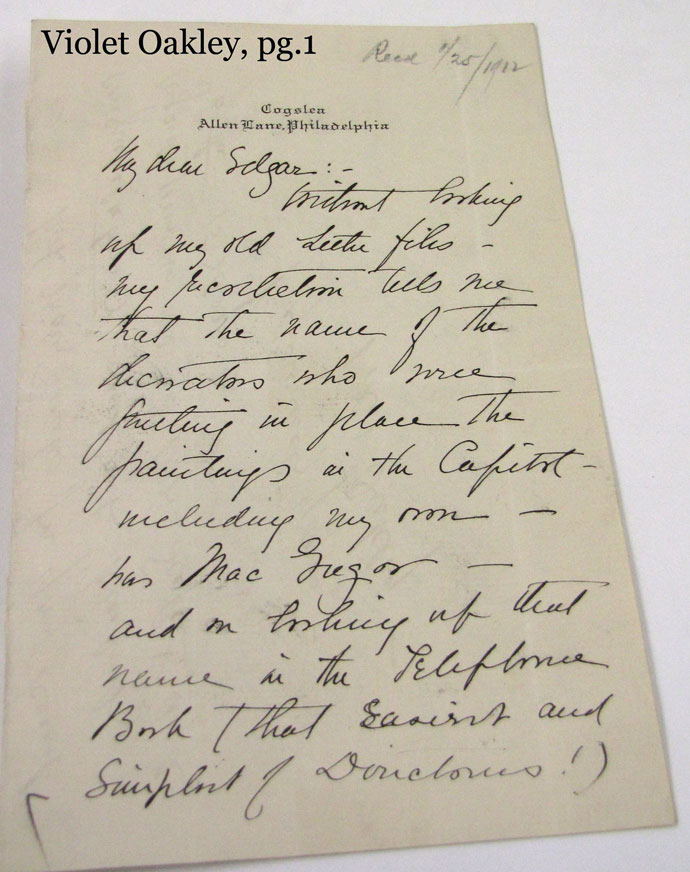 Violet Oakley, pg.1
Recd /25/19
Cogslea
Allen Lane, Philadelphia
My dear Edgar:-
Without looking
up my old Letter files -
my recollection tells me
that the name of the
decorators who were
putting in place the
paintings in the Capitol -
including my own -
was Mac Gregor -
and on looking up that
name in the Telephone
Book (that Easiest and
Simplest of Directories!)